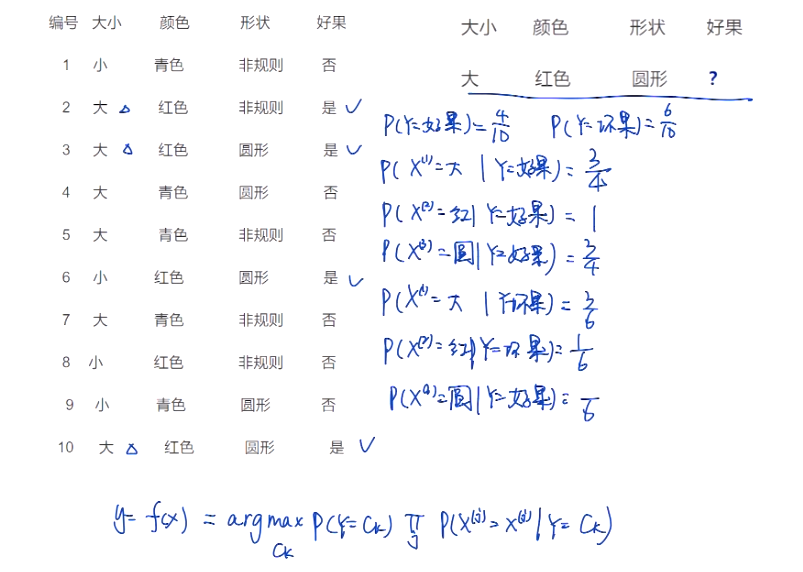 编号 大小 颜色 形状 好果
1 小 青色 非规则 否
2 大 红色 非规则 是
3 大 红色 圆形 是
4 大 青色 圆形 否
5 大 青色 非规则 否
6 小 红色 圆形 是
7 大 青色 非规则 否
8 小 红色 非规则 否
9 小 青色 圆形 否
10 大 红色 圆形 是
大小 颜色 形状 好果
大 红色 圆形 ?
P(Y=好果)=4/10 P(Y=坏果)=6/10
P(X⁽¹⁾=大 | Y=好果)=3/4
P(X⁽²⁾=红 | Y=好果)=1
P(X⁽³⁾=圆 | Y=好果)=3/4
P(X⁽¹⁾=大 | Y=坏果)=3/6
P(X⁽²⁾=红 | Y=坏果)=1/6
P(X =圆 | Y=好果)= /6
y=f(x)=argmax P(Y=Ck) ∏ P(X⁽ʲ⁾=x⁽ʲ⁾ | Y=Ck)
Ck j